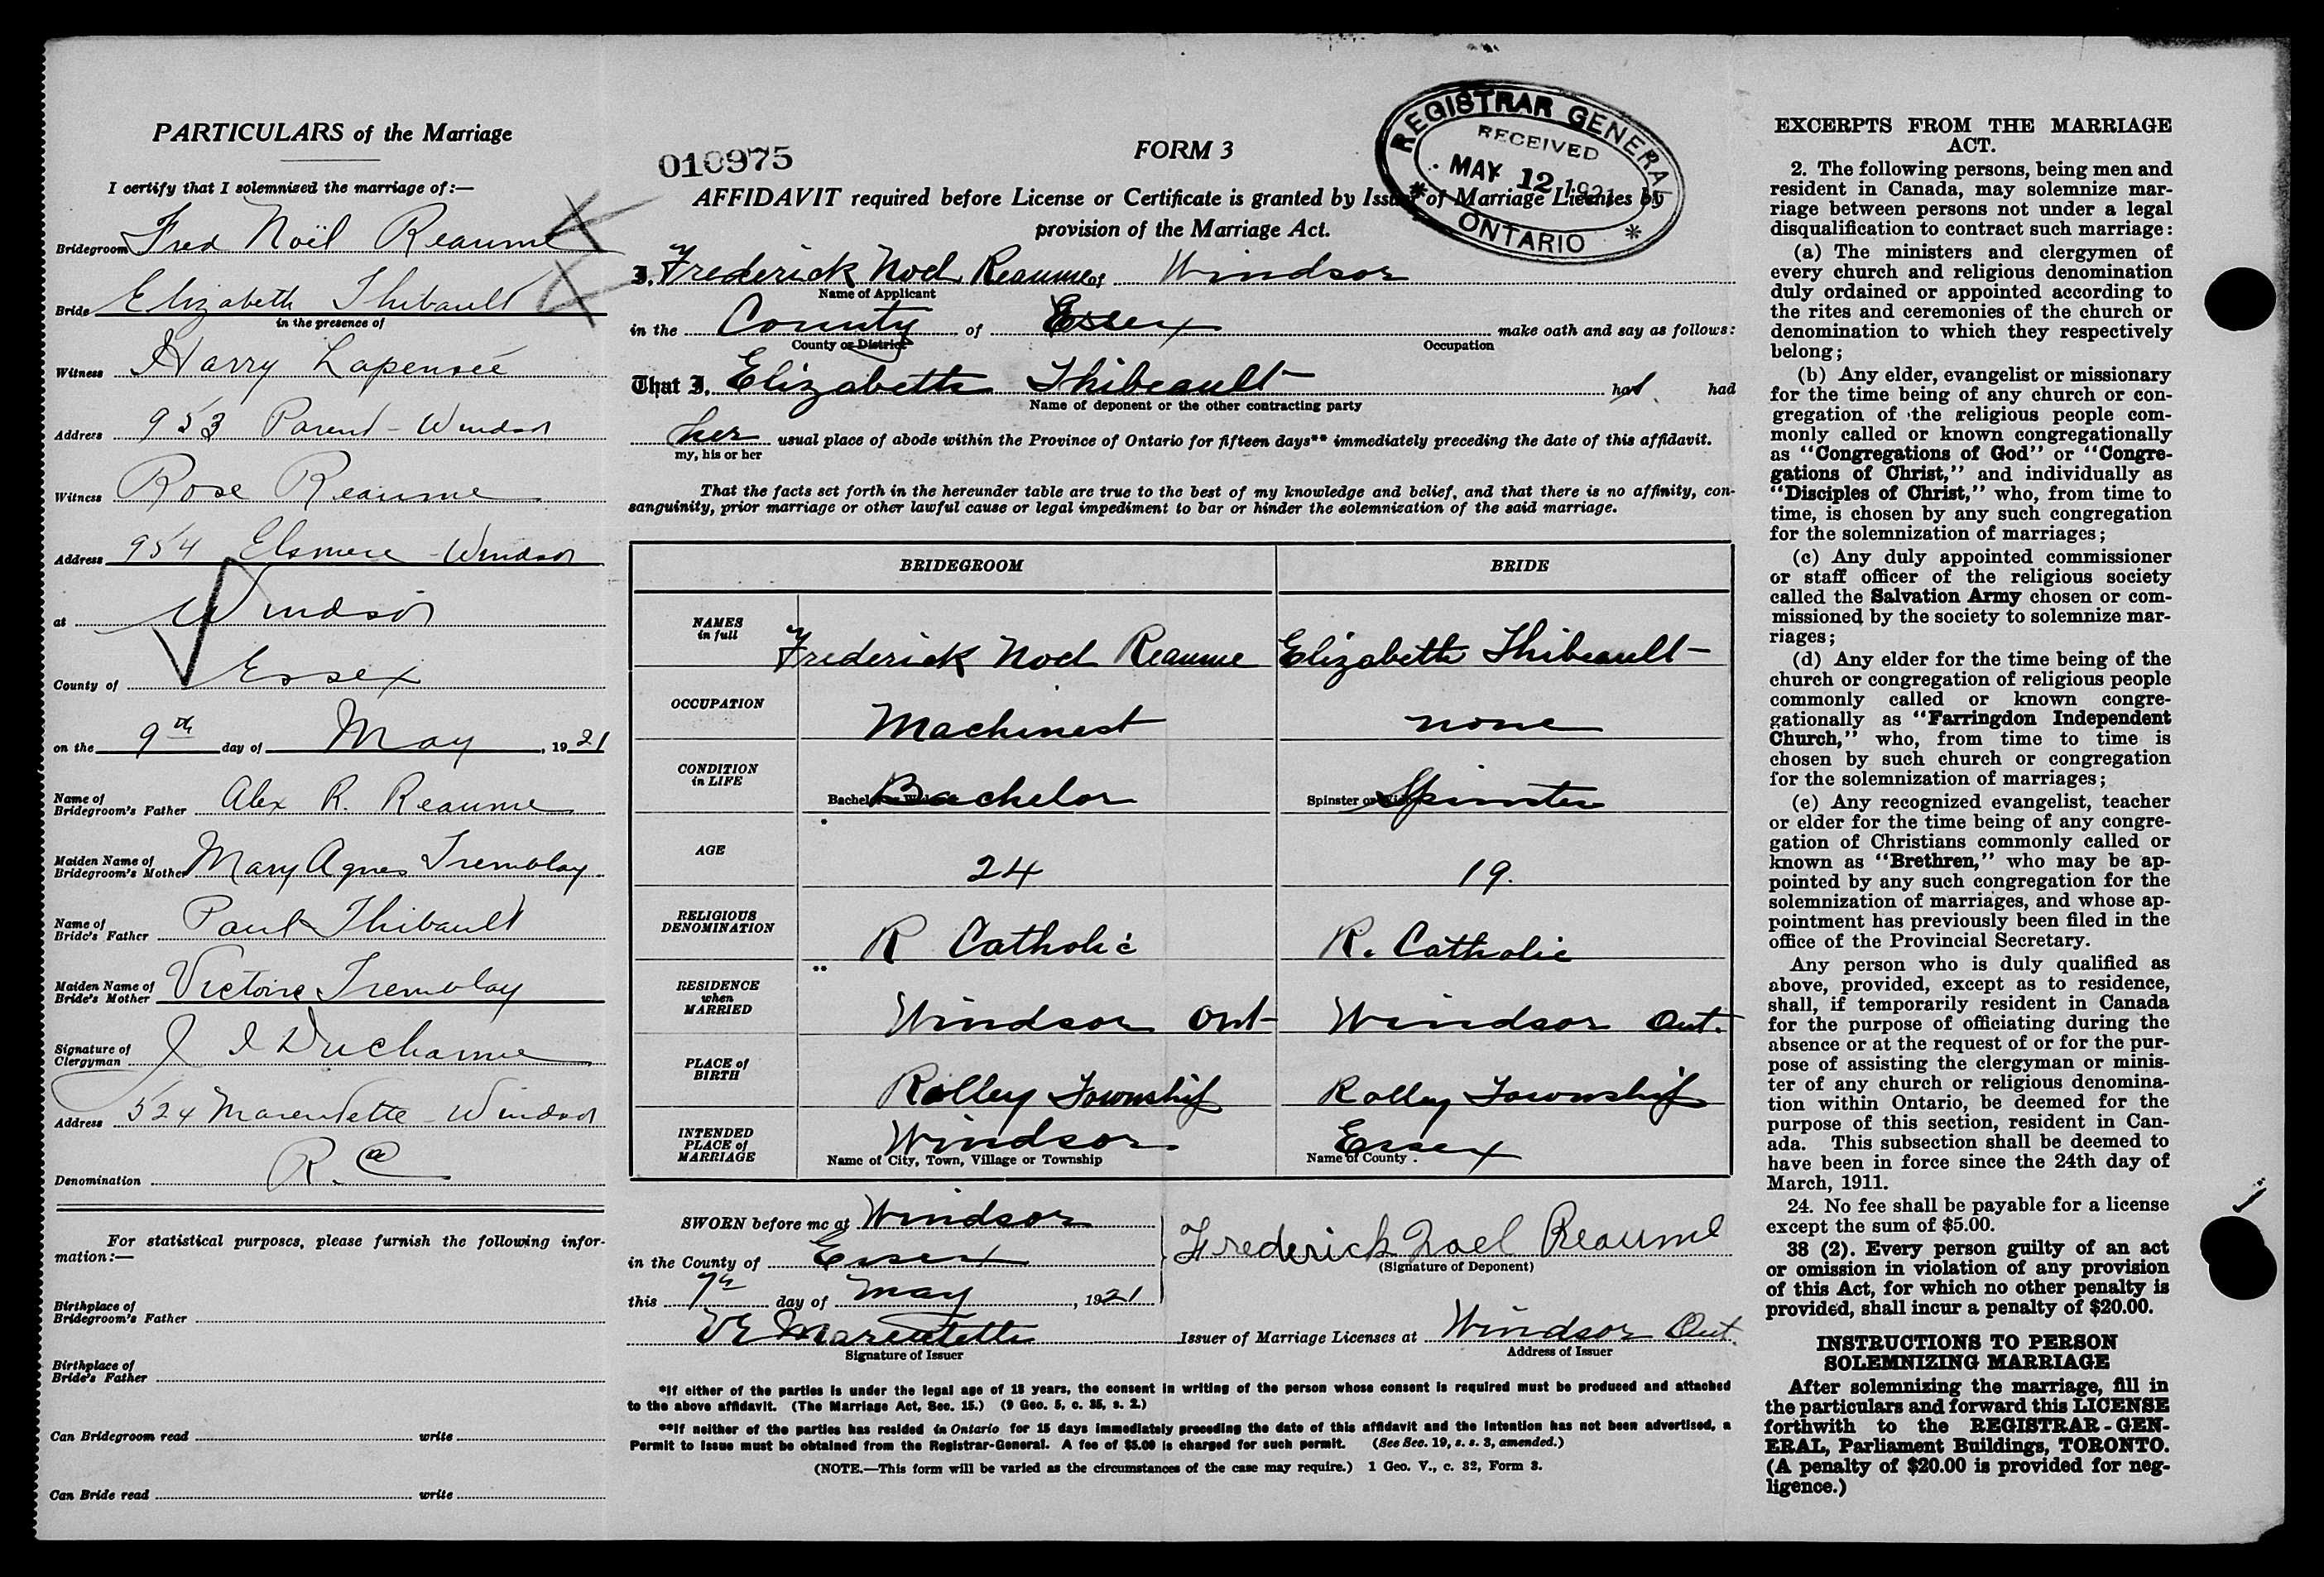 PARTICULARS of the Marriage
I certify that I solemnized the marriage of:—
Bridegroom Fred Noël Reaume
Bride Elizabeth Thibault
in the presence of
Witness Harry Lapensée
Address 953 Parent - Windsor
Witness Rose Reaume
Address 954 Elsmere - Windsor
at Windsor
County of Essex
on the 9th day of May, 1921
Name of Bridegroom's Father Alex R. Reaume
Maiden Name of Bridegroom's Mother Mary Agnes Tremblay
Name of Bride's Father Paul Thibault
Maiden Name of Bride's Mother Victoire Tremblay
Signature of Clergyman J I Ducharme
Address 524 Marentette - Windsor
Denomination R. C
For statistical purposes, please furnish the following infor-
mation:—
Birthplace of Bridegroom's Father
Birthplace of Bride's Father
Can Bridegroom read write
Can Bride read write
010975
FORM 3
REGISTRAR GENERAL
RECEIVED
MAY 12 1921
* ONTARIO *
AFFIDAVIT required before License or Certificate is granted by Issuer of Marriage Licenses by
provision of the Marriage Act.
I, Frederick Noel Reaume of Windsor
Name of Applicant
in the County of Essex make oath and say as follows:
County or District Occupation
That I, Elizabeth Thibeault had had
Name of deponent or the other contracting party
her usual place of abode within the Province of Ontario for fifteen days** immediately preceding the date of this affidavit.
my, his or her
That the facts set forth in the hereunder table are true to the best of my knowledge and belief, and that there is no affinity, con-
sanguinity, prior marriage or other lawful cause or legal impediment to bar or hinder the solemnization of the said marriage.
BRIDEGROOM BRIDE
NAMES in full Frederick Noel Reaume Elizabeth Thibeault
OCCUPATION Machinest none
CONDITION in LIFE Bachelor Spinster
AGE 24 19.
RELIGIOUS DENOMINATION R Catholic R. Catholic
RESIDENCE when MARRIED Windsor Ont Windsor Ont.
PLACE of BIRTH Rolley Township Rolley Township
INTENDED PLACE of MARRIAGE Windsor Essex
Name of City, Town, Village or Township Name of County.
SWORN before me at Windsor
in the County of Essex
this 7th day of May, 1921
Frederick Noel Reaume
(Signature of Deponent)
V E Marentette Issuer of Marriage Licenses at Windsor Ont.
Signature of Issuer Address of Issuer
*If either of the parties is under the legal age of 18 years, the consent in writing of the person whose consent is required must be produced and attached
to the above affidavit. (The Marriage Act, Sec. 15.) (9 Geo. 5, c. 35, s. 2.)
**If neither of the parties has resided in Ontario for 15 days immediately preceding the date of this affidavit and the intention has not been advertised, a
Permit to issue must be obtained from the Registrar-General. A fee of $5.00 is charged for such permit. (See Sec. 19, s. s. 3, amended.)
(NOTE.—This form will be varied as the circumstances of the case may require.) 1 Geo. V., c. 32, Form 3.
EXCERPTS FROM THE MARRIAGE
ACT.
2. The following persons, being men and
resident in Canada, may solemnize mar-
riage between persons not under a legal
disqualification to contract such marriage:
(a) The ministers and clergymen of
every church and religious denomination
duly ordained or appointed according to
the rites and ceremonies of the church or
denomination to which they respectively
belong;
(b) Any elder, evangelist or missionary
for the time being of any church or con-
gregation of the religious people com-
monly called or known congregationally
as "Congregations of God" or "Congre-
gations of Christ," and individually as
"Disciples of Christ," who, from time to
time, is chosen by any such congregation
for the solemnization of marriages;
(c) Any duly appointed commissioner
or staff officer of the religious society
called the Salvation Army chosen or com-
missioned by the society to solemnize mar-
riages;
(d) Any elder for the time being of the
church or congregation of religious people
commonly called or known congre-
gationally as "Farringdon Independent
Church," who, from time to time is
chosen by such church or congregation
for the solemnization of marriages;
(e) Any recognized evangelist, teacher
or elder for the time being of any congre-
gation of Christians commonly called or
known as "Brethren," who may be ap-
pointed by any such congregation for the
solemnization of marriages, and whose ap-
pointment has previously been filed in the
office of the Provincial Secretary.
Any person who is duly qualified as
above, provided, except as to residence,
shall, if temporarily resident in Canada
for the purpose of officiating during the
absence or at the request of or for the pur-
pose of assisting the clergyman or minis-
ter of any church or religious denomina-
tion within Ontario, be deemed for the
purpose of this section, resident in Can-
ada. This subsection shall be deemed to
have been in force since the 24th day of
March, 1911.
24. No fee shall be payable for a license
except the sum of $5.00.
38 (2). Every person guilty of an act
or omission in violation of any provision
of this Act, for which no other penalty is
provided, shall incur a penalty of $20.00.
INSTRUCTIONS TO PERSON
SOLEMNIZING MARRIAGE
After solemnizing the marriage, fill in
the particulars and forward this LICENSE
forthwith to the REGISTRAR-GEN-
ERAL, Parliament Buildings, TORONTO.
(A penalty of $20.00 is provided for neg-
ligence.)